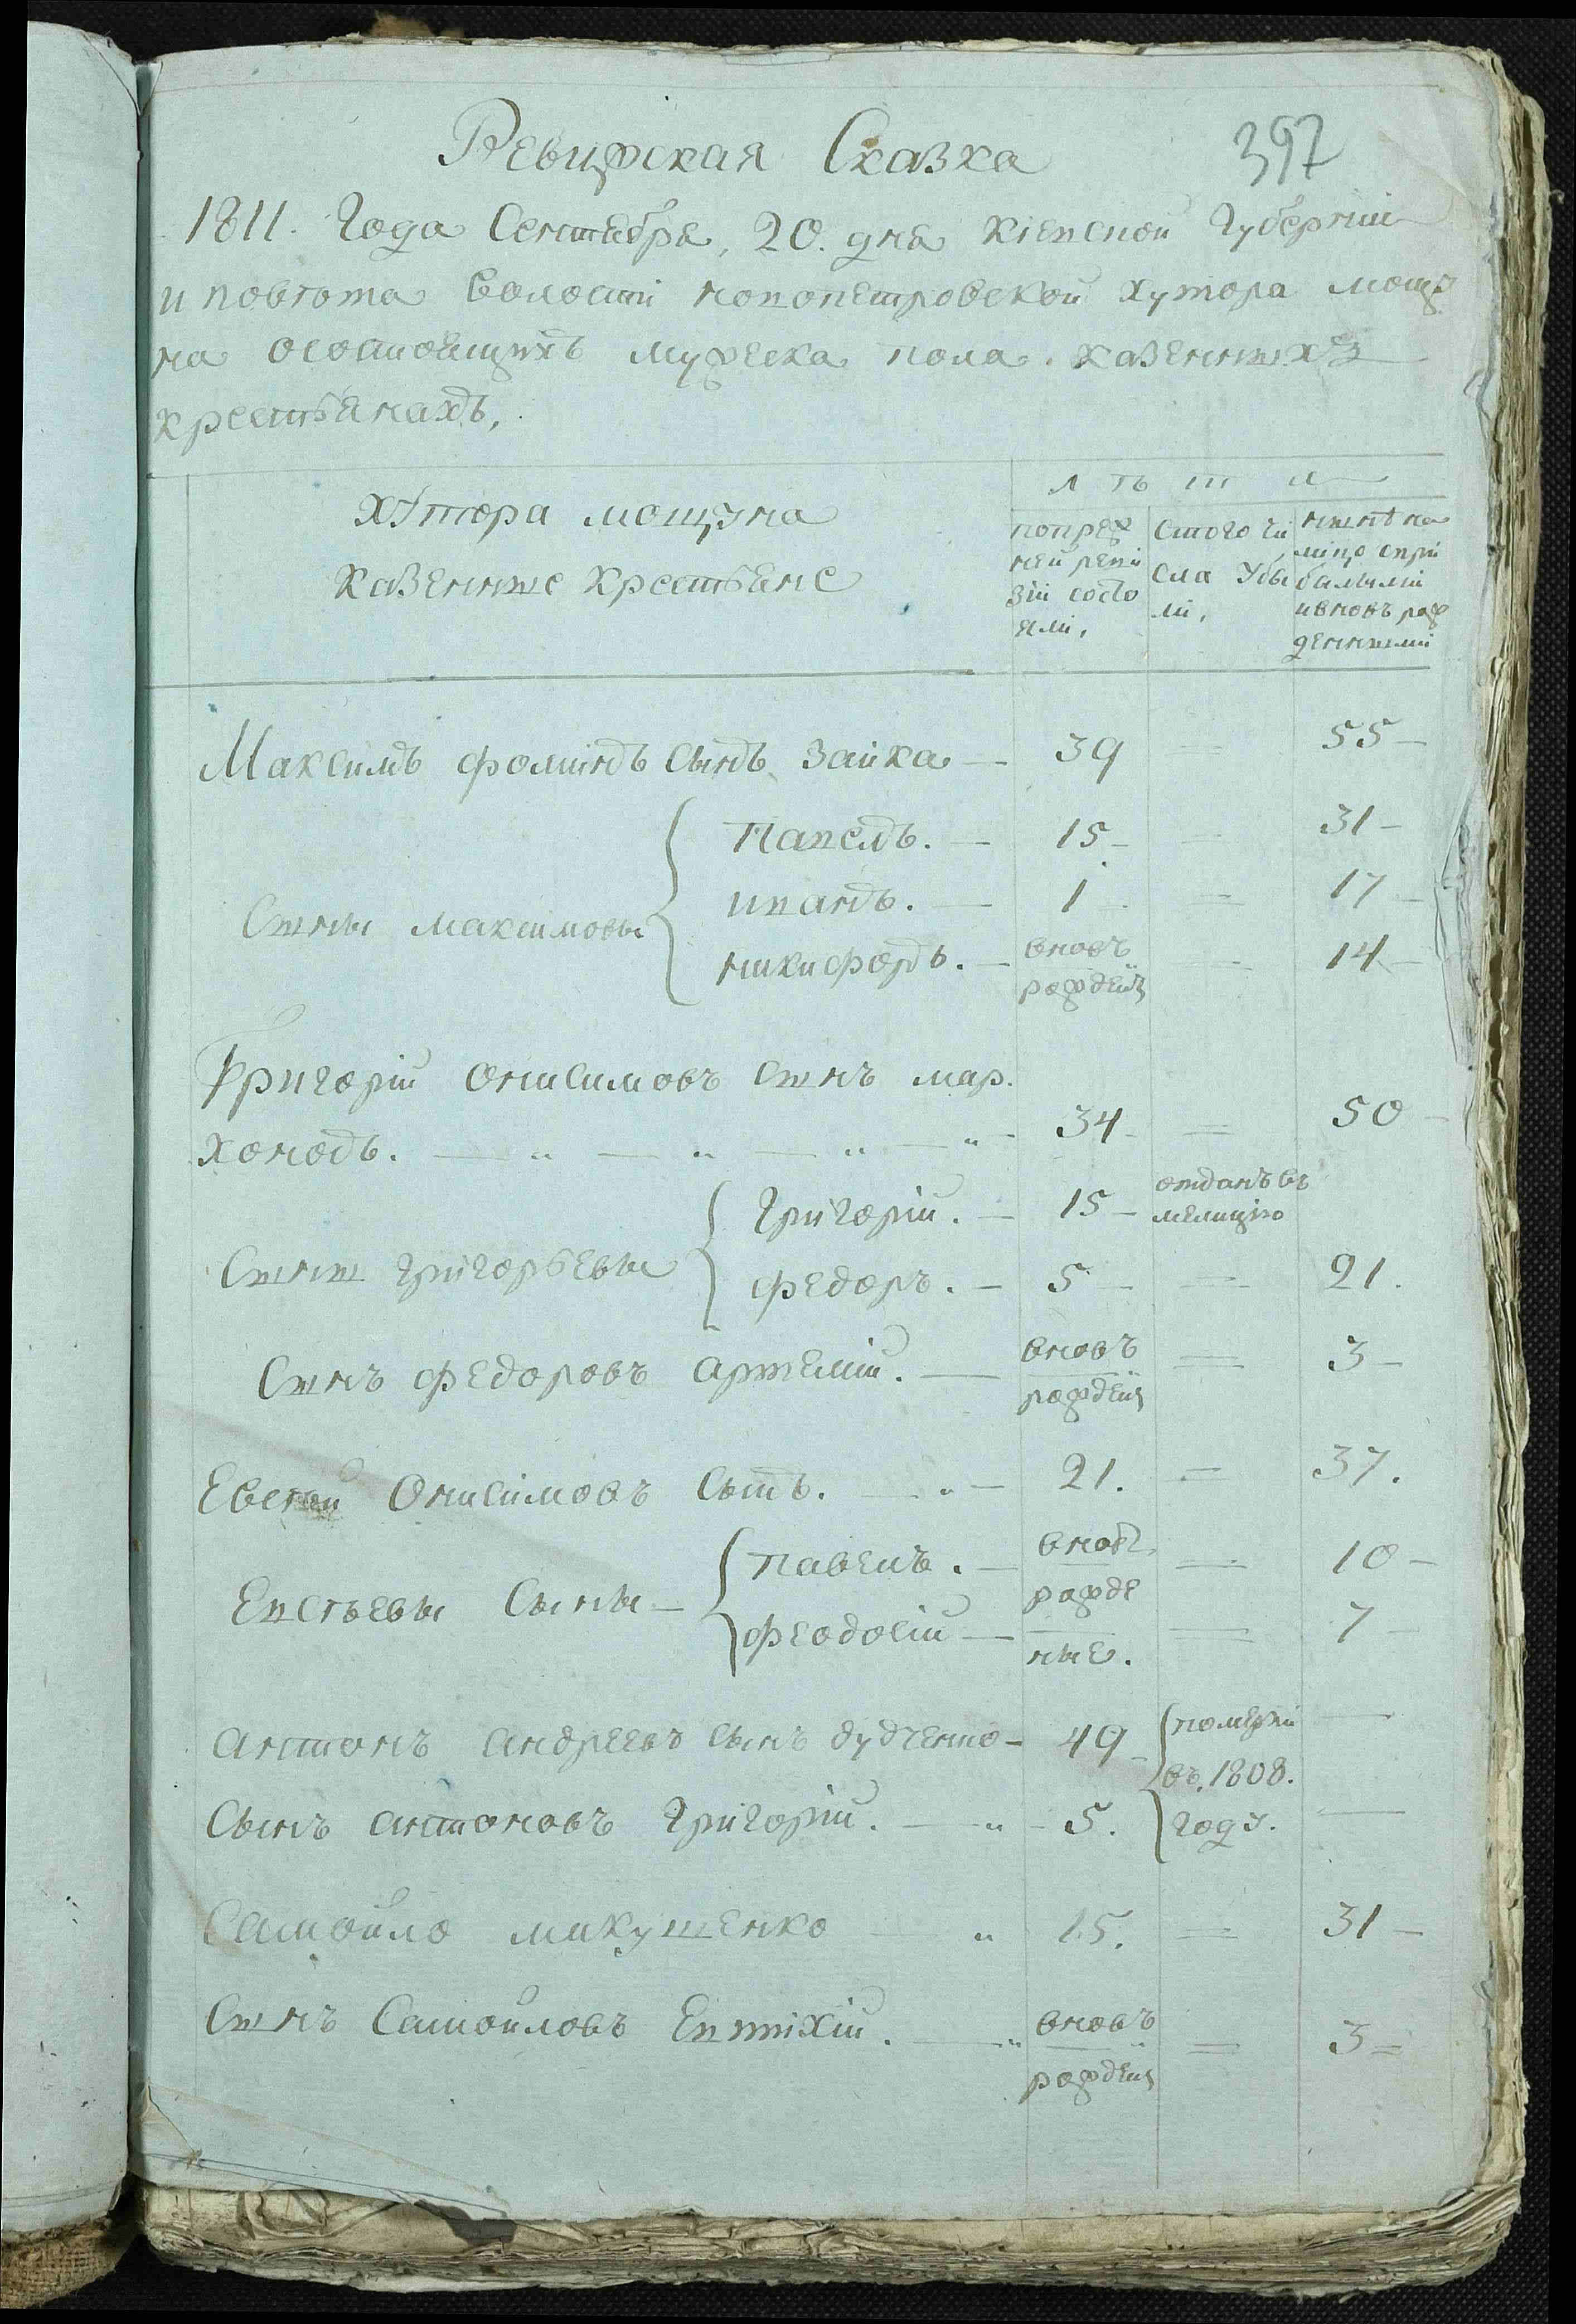 Ревижская Сказка
397
1811. Года Сентебра, 20. дня Кіевской Губерніи
и повѣта волости новопетровской хутора мощу
на осостоящихъ мужеска пола. казенныхъ
крестьянахъ,
хутора мощуна
казенные крестьяне
лѣта
попреж
ней реви
зіи состо
яли,
Стого чи
сла Убы
ли,
нынѣ на
лицо спри
былыми
ивновь рож
денными
Максимъ фоминъ Сынъ Заика — 39 = 55 —
Сыны максимовы
Павелъ. — 15 — 31 —
иванъ. — 1 — = 17 —
никифоръ. — вновь рожден = 14 —
Григорій Онисимовъ Сынъ мар.
хонокъ. — " — " — " — " — 34 — = 50 —
Сыны Григорьевы
Григорій. — 15 — отданъ въ милицію
федоръ. — 5 — = 21.
Сынъ федоровъ Артемій. — вновь рожден = 3 —
Евсѣй Онисимовъ Сынъ. — " — 21. = 37.
Евсѣевы Сыны —
Павелъ. — вновь = 10 —
рожде
феодосій — ные. = 7 —
Антонъ Андреевъ Сынъ дудченко — 49 — померли —
въ 1808.
Сынъ Антоновъ Григорій. — " — 5. году. —
Самойло микушенко — " 15. = 31 —
Сынъ Самойловъ Евтихій. — " вновь рожден = 3 =